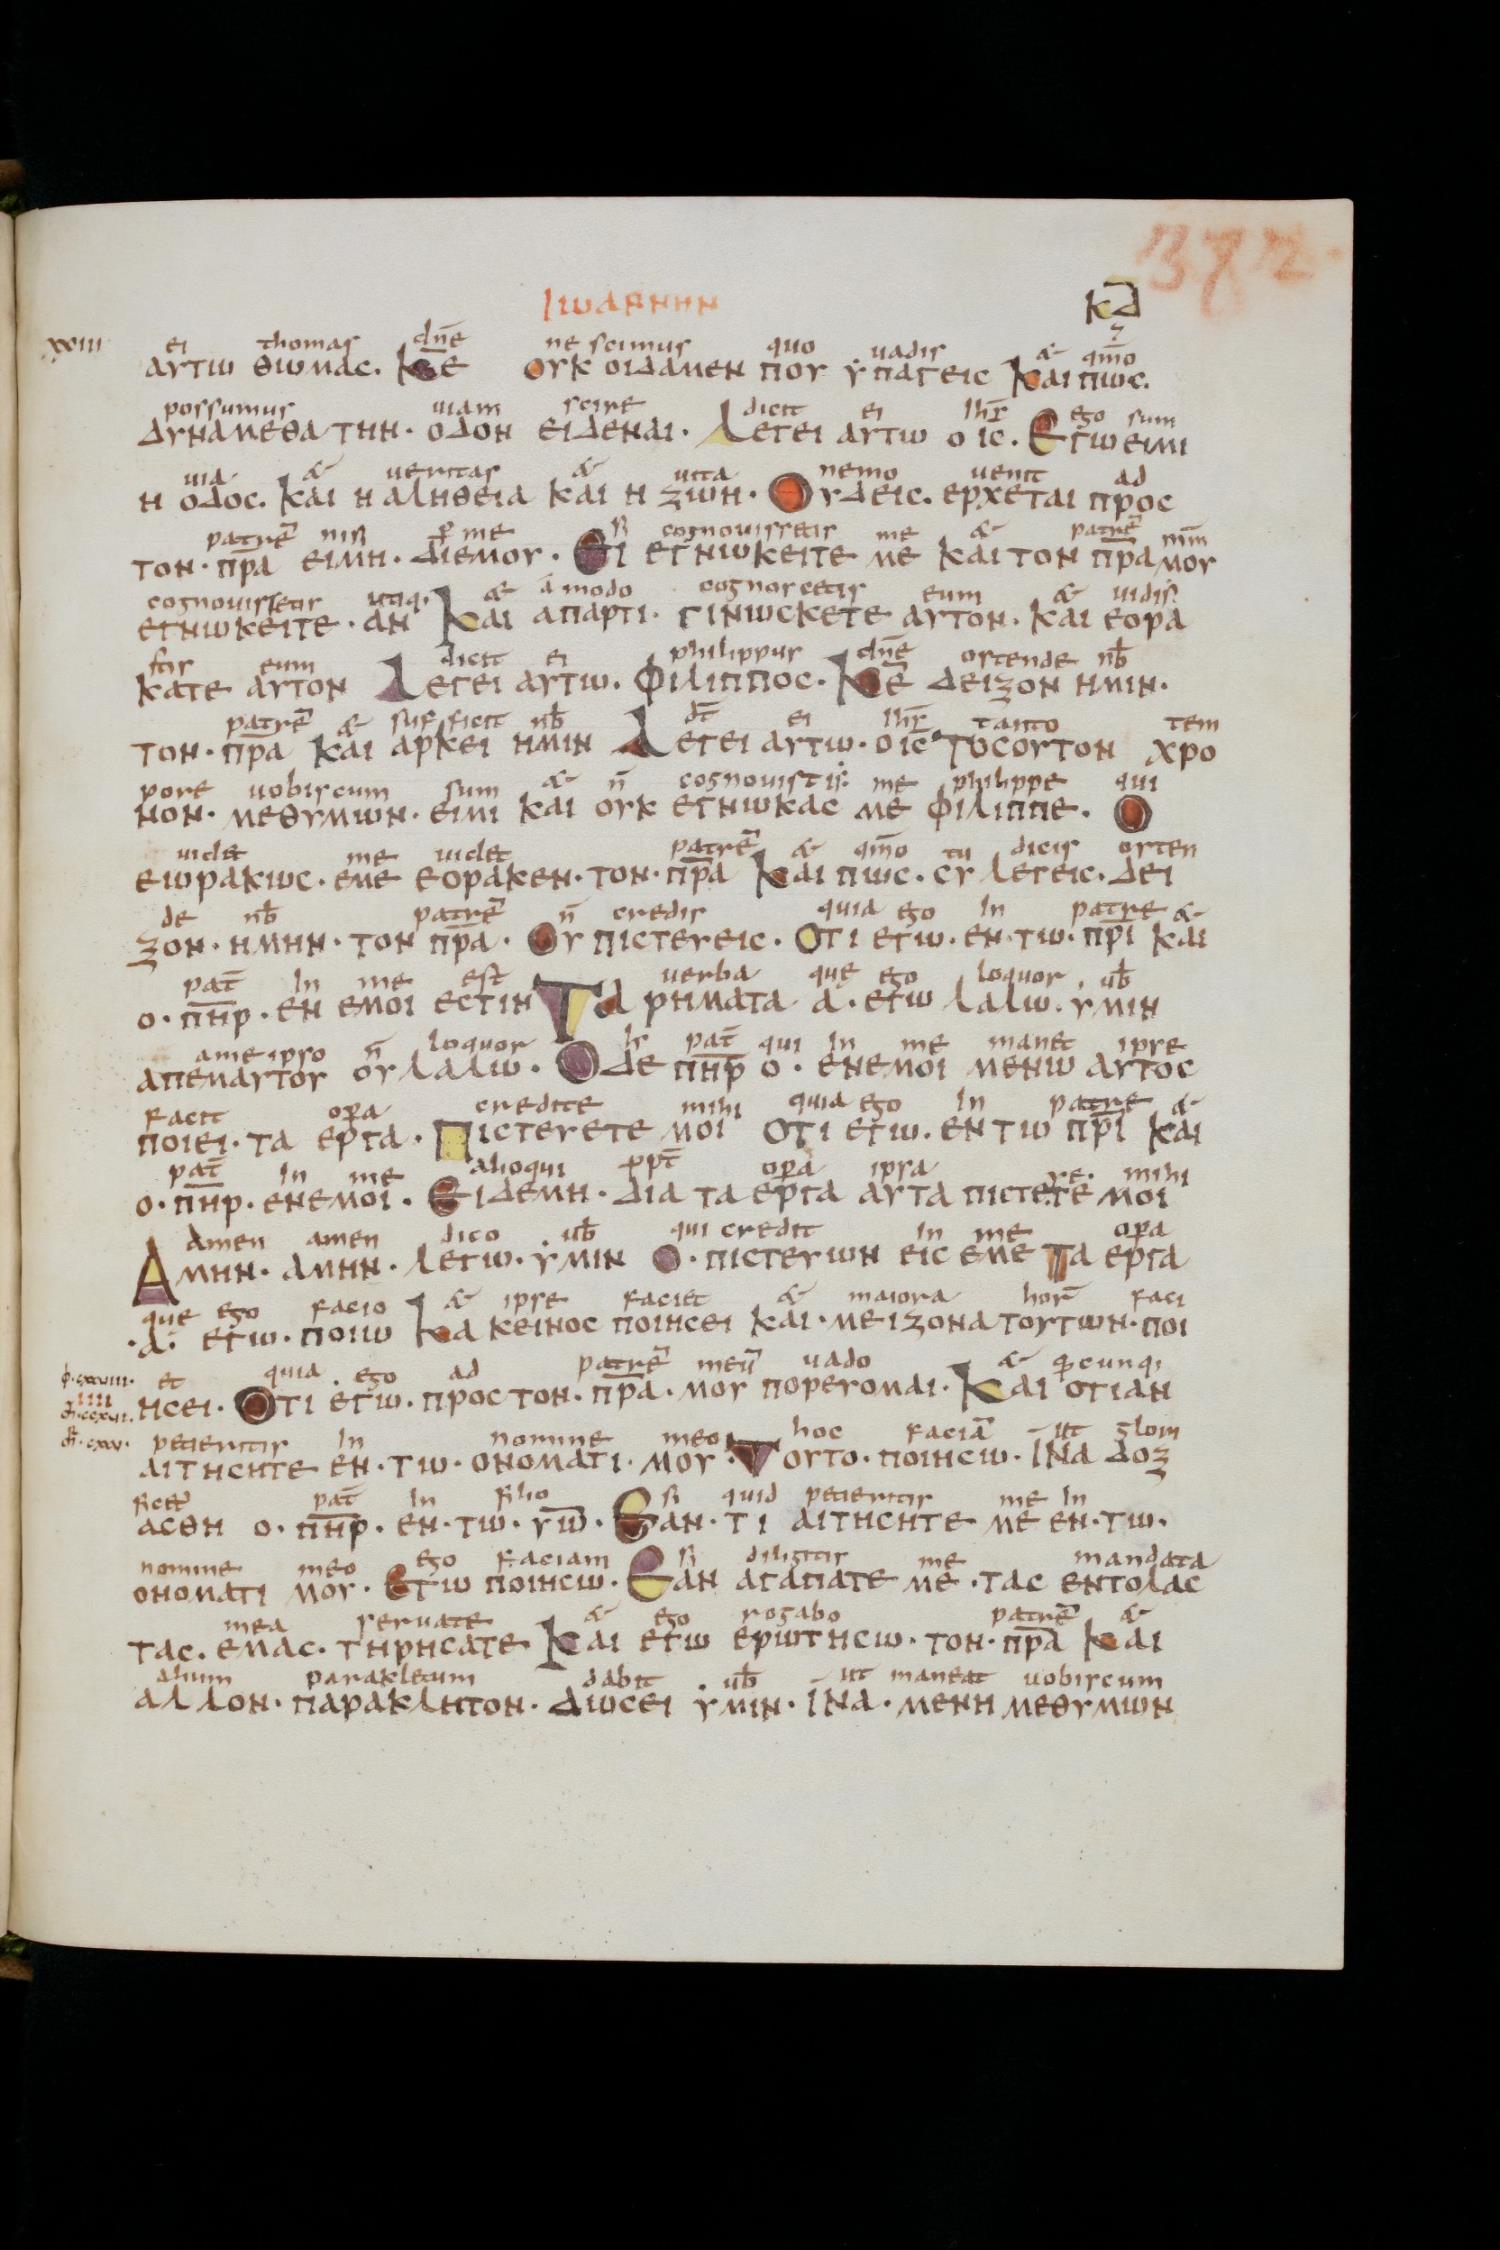 372
ΙωΑΝΝΗΝ
ΚΔ
xxiii
ei thomas dn̄e ne scimus quo uadis & qm̄o
ΑΥΤω ΘωΜΑC. Κ̄Ε ΟΥΚ ΟΙΔΑΜΕΝ ΠΟΥ ΥΠΑΓΕΙC ΚΑΙ ΠωC.
possumus uiam scire dicit ei ihs̄ ego sum
ΔΥΝΑΜΕΘΑ ΤΗΝ· ΟΔΟΝ ΕΙΔΕΝΑΙ· ΛΕΓΕΙ ΑΥΤω Ο ΙC. ΕΓω ΕΙΜΙ
uia & ueritas & uita nemo uenit ad
Η ΟΔΟC. ΚΑΙ Η ΑΛΗΘΕΙΑ ΚΑΙ Η ΖωΗ· ΟΥΔΕΙC. ΕΡΧΕΤΑΙ ΠΡΟC
patrē nisi p̄ me si cognouissetis me & patrē mm̄
ΤΟΝ· Π̄Ρ̄Α ΕΙΜΗ· ΔΙΕΜΟΥ· ΕΙ ΕΓΝωΚΕΙΤΕ ΜΕ ΚΑΙ ΤΟΝ Π̄Ρ̄Α ΜΟΥ
cognouissetis utiq· & āmodo cognoscetis eum & uidis
ΕΓΝωΚΕΙΤΕ· ΑΝ ΚΑΙ ΑΠΑΡΤΙ· ΓΙΝωCΚΕΤΕ ΑΥΤΟΝ· ΚΑΙ ΕΟΡΑ
tis eum dicit ei philippus dn̄e ostende nb̄
ΚΑΤΕ ΑΥΤΟΝ ΛΕΓΕΙ ΑΥΤω. ΦΙΛΙΠΠΟC· Κ̄Ε ΔΕΙΞΟΝ ΗΜΙΝ·
patrē & sufficit nb̄ dt̄ ei ihs̄ tanto tem
ΤΟΝ· Π̄Ρ̄Α ΚΑΙ ΑΡΚΕΙ ΗΜΙΝ ΛΕΓΕΙ ΑΥΤω· Ο ΙC ΤΟCΟΥΤΟΝ ΧΡΟ
pore uobiscum sum & n̄ cognouistis me philippe qui
ΝΟΝ· ΜΕΘΥΜωΝ· ΕΙΜΙ ΚΑΙ ΟΥΚ ΕΓΝωΚΑC ΜΕ ΦΙΛΙΠΠΕ. Ο
uidet me uidet patrē & qm̄o tu dicis osten
ΕωΡΑΚωC· ΕΜΕ ΕΟΡΑΚΕΝ· ΤΟΝ· Π̄Ρ̄Α ΚΑΙ ΠωC. CΥ ΛΕΓΕΙC. ΔΕΙ
de nb̄ patrē n̄ credis quia ego in patre &
ΞΟΝ· ΗΜΗΝ· ΤΟΝ Π̄Ρ̄Α· ΟΥ ΠΙCΤΕΥΕΙC. ΟΤΙ ΕΓω. ΕΝ·Τω· Π̄Ρ̄Ι ΚΑΙ
pat̄ in me est uerba que ego loquor ub̄
Ο· Π̄Η̄Ρ· ΕΝ ΕΜΟΙ ΕCΤΙΝ ΤΑ ΡΗΜΑΤΑ Α· ΕΓω ΛΑΛω. ΥΜΙΝ
ame ipso n̄ loquor pat̄ qui in me manet ipse
ΑΠΕΜΑΥΤΟΥ ΟΥ ΛΑΛω· Ο ΔΕ Π̄Η̄Ρ Ο· ΕΝΕΜΟΙ ΜΕΝω ΑΥΤΟC
facit op̄a credite mihi quia ego in patre &
ΠΟΙΕΙ· ΤΑ ΕΡΓΑ· ΠΙCΤΕΥΕΤΕ ΜΟΙ ΟΤΙ ΕΓω. ΕΝ Τω Π̄Ρ̄Ι ΚΑΙ
pat̄ in me alioqui ppt̄ op̄a ipsa re· mihi
Ο· Π̄Η̄Ρ· ΕΝΕΜΟΙ· ΕΙΔΕΜΗ· ΔΙΑ ΤΑ ΕΡΓΑ ΑΥΤΑ ΠΙCΤΕΤΕ ΜΟΙ
amen amen dico ub̄ qui credit in me op̄a
ΑΜΗΝ· ΑΜΗΝ· ΛΕΓω· ΥΜΙΝ Ο· ΠΙCΤΕΥωΝ ΕΙC ΕΜΕ ΤΑ ΕΡΓΑ
que ego facio & ipse faciet & maiora hor̄ faci
·Α· ΕΓω· ΠΟΙω ΚΑ ΚΕΙΝΟC ΠΟΙΗCΕΙ ΚΑΙ· ΜΕΙΖΟΝΑ ΤΟΥΤωΝ· ΠΟΙ
et quia ego ad patrē meū uado & qcunqi
ΗCΕΙ· ΟΤΙ ΕΓω. ΠΡΟC ΤΟΝ· Π̄Ρ̄Α· ΜΟΥ ΠΟΡΕΥΟΜΑΙ· ΚΑΙ ΟΤΙΑΝ
petieritis in nomine meo hoc faciā ut glori
ΑΙΤΗCΗΤΕ ΕΝ·Τω· ΟΝΟΜΑΤΙ· ΜΟΥ· ΤΟΥΤΟ· ΠΟΙΗCω· ΙΝΑ ΔΟΞ
ficet pat̄ in filio si quid petieritis me in
ΑCΘΗ Ο· Π̄Η̄Ρ· ΕΝ·Τω· Ῡω̄· ΕΑΝ·ΤΙ ΑΙΤΗCΗΤΕ ΜΕ ΕΝ·Τω·
nomine meo ego faciam si diligitis me mandata
ΟΝΟΜΑΤΙ ΜΟΥ· ΕΓω ΠΟΙΗCω· ΕΑΝ ΑΓΑΠΑΤΕ ΜΕ·ΤΑC ΕΝΤΟΛΑC
mea seruate & ego rogabo patrē &
ΤΑC. ΕΜΑC· ΤΗΡΗCΑΤΕ ΚΑΙ ΕΓω ΕΡωΤΗCω· ΤΟΝ· Π̄Ρ̄Α ΚΑΙ
alium parakletum dabit ub̄ ut maneat uobiscum
ΑΛΛΟΝ· ΠΑΡΑΚΛΗΤΟΝ· ΔωCΕΙ ΥΜΙΝ· ΙΝΑ· ΜΕΝΗ ΜΕΘΥΜωΝ